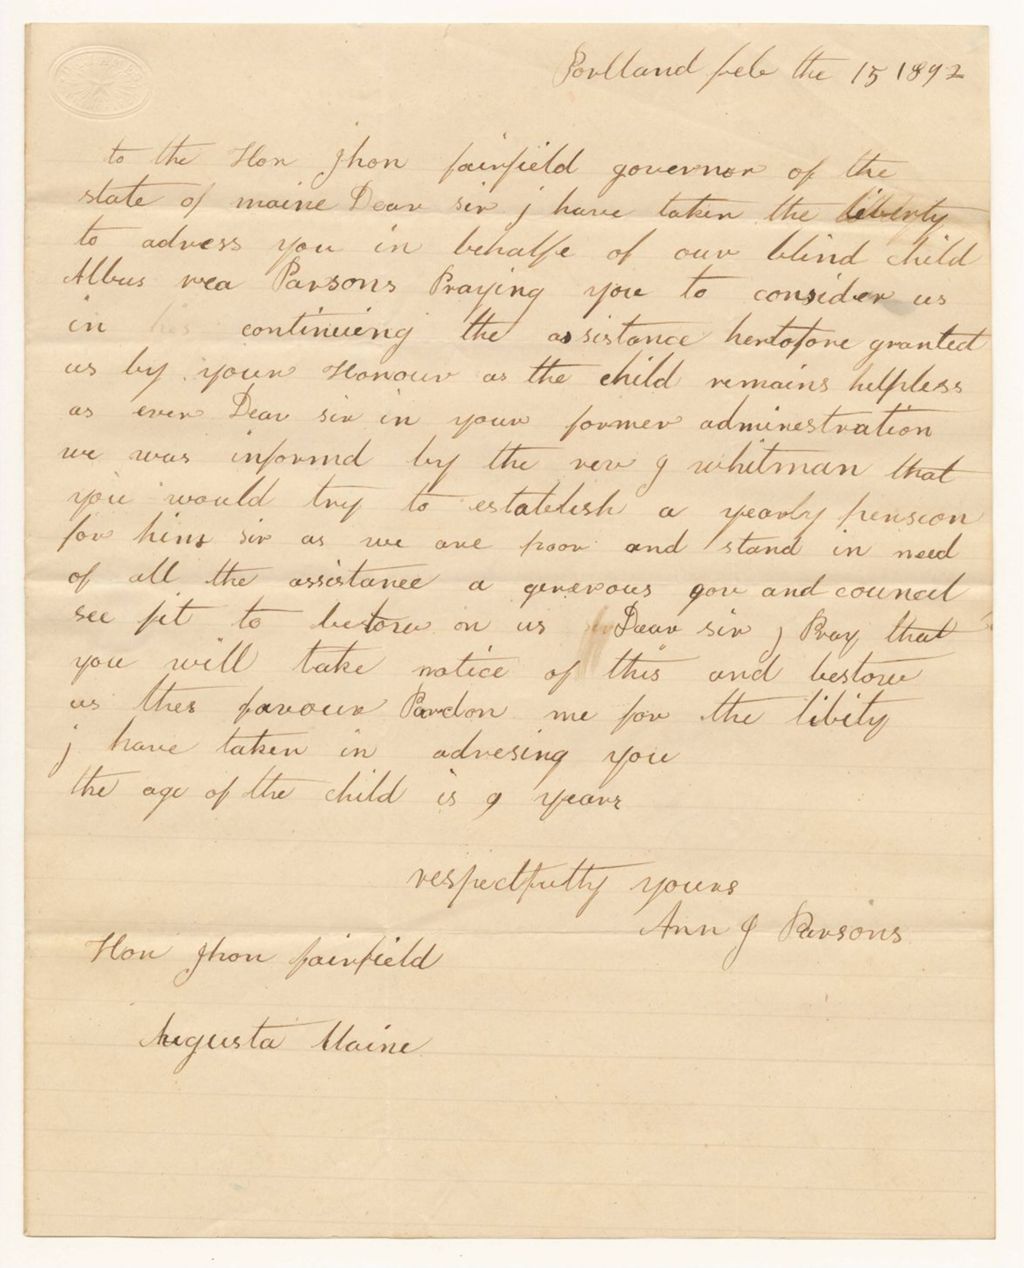 Portland feb the 15 1842
to the Hon Jhon fairfield governor of the
state of maine Dear sir j have taken the liberty
to adress you in behalfe of our blind child
Albus rea Parsons Praying you to consider us
in his continueing the assistance hertofore granted
us by your Honour as the child remains helpless
as ever Dear sir in your former administration
we was informd by the rev J whitman that
you would try to establish a yearly pension
for him sir as we are poor and stand in need
of all the assistance a generous gov and council
see fit to bestow on us Dear sir j Pray that
you will take notice of this and bestow
us thes favour Pardon me for the libity
j have taken in adresing you
the age of the child is 9 years
respectfully yours
Ann J Parsons
Hon Jhon fairfield
Augusta Maine